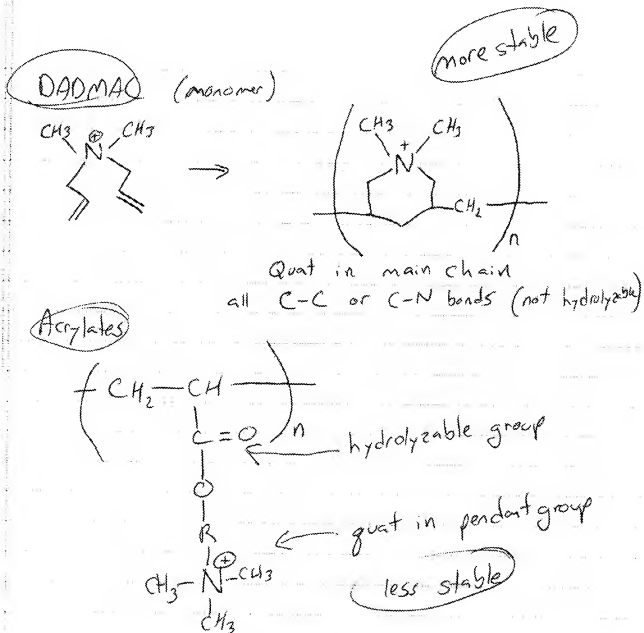 more stable
DADMAC (monomer)
CH3 ⊕ CH3
N
→
CH3 CH3
+
N
CH2
n
Quat in main chain
all C-C or C-N bonds (not hydrolyzable)
Acrylates
CH2—CH
n
C=O
hydrolyzable group
O
R
quat in pendant group
⊕
CH3—N—CH3
less stable
CH3